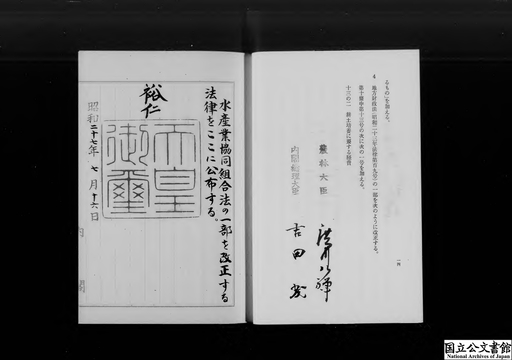 るもの」を加える。
4 地方財政法(昭和二十三年法律第百九号)の一部を次のように改正する。
第十條中第十三号の次に次の一号を加える。
十三の二
農林大臣
内閣総理大臣
吉田茂
一四
水産業協同組合法の一部を改正する
法律をここに公布する。
裕仁
天皇
御璽
昭和二十七年七月十六日
内閣
国立公文書館
National Archives of Japan